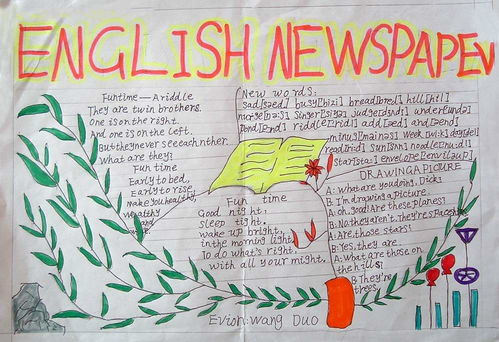 ENGLISH NEWSPAPEV
Funtime—A riddle
They are twin brothers.
One is on the right.
And one is on the left.
But they never see each nther.
What are they?
Fun time
Early to bed,
Early to rise,
Make you healthy,
wealthy
and
wise.
New words:
sad[sæd] busy[bizi] bread[bred] hill[hil]
nurse[nə:s] singer[siŋə] judge[dʒʌdʒ] under[ʌndə]
pond[pɔnd] riddle[ridl] add[æd] end[end]
minus[mainəs] week[wi:k] day[dei]
read[ri:d] sun[sʌn] noodle[nu:dl]
star[sta:] envelope[enviləup]
DRAWING A PICTURE
A: what are you doing, Dick?
B: I'm drawing a picture.
A: oh, good! Are these planes?
B: No, they aren't. They're spaceships
A: Are those stars?
B: Yes, they are.
A: What are those on
the hills?
B: They're
trees.
Fun time
Good night,
sleep tight.
wake up bright,
in the morning light
To do what's right.
with all your might.
Evion: Wang Duo